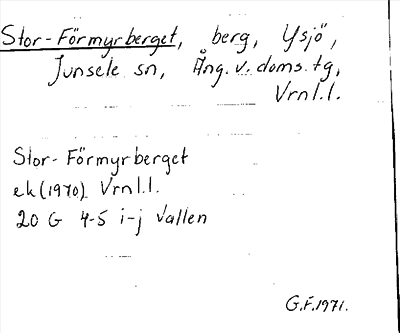 Stor-Förmyrberget, berg, Ysjö,
Junsele sn, Ång. v. doms. tg,
Vrnl.l.
Stor-Förmyrberget
ek(1970) Vrnl.l.
20 G 4-5 i-j Vallen
G.F.1971.